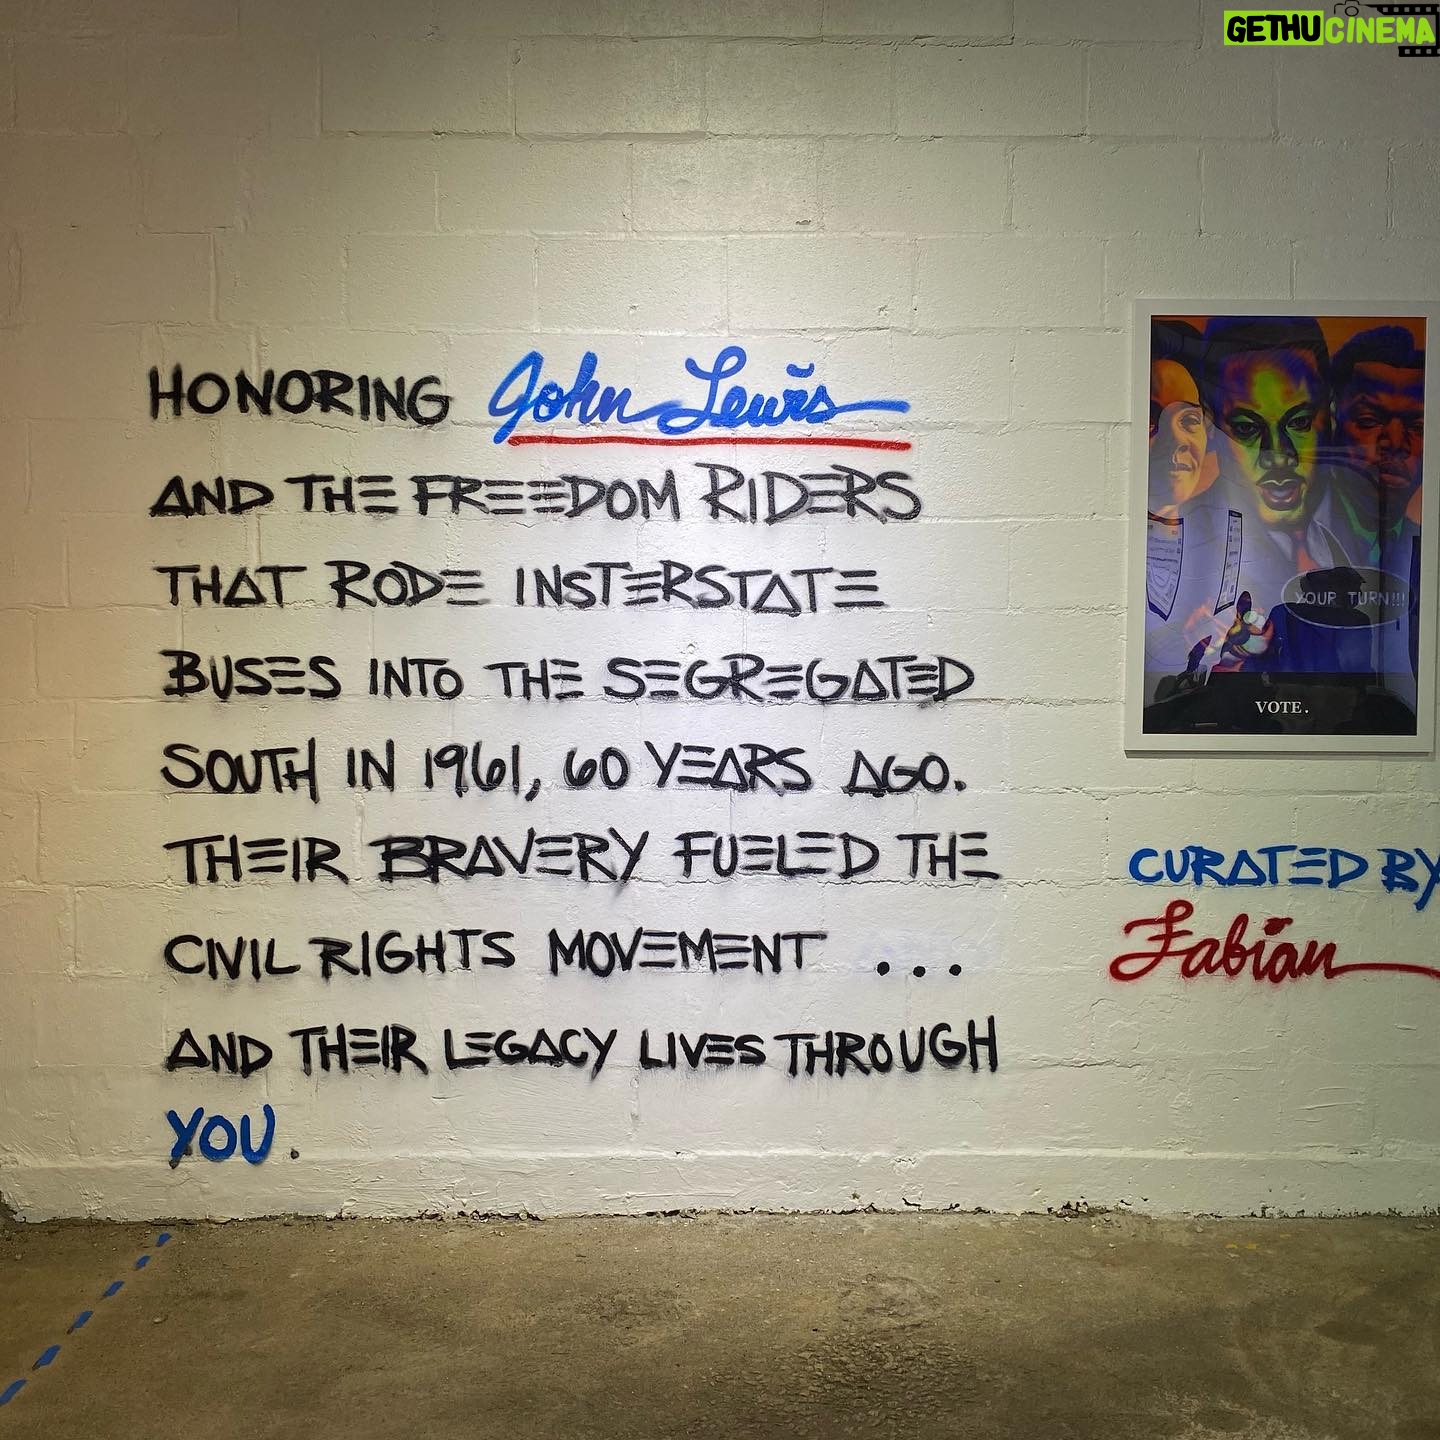 GETHUCINEMA
HONORING John Lewis
AND THE FREEDOM RIDERS
THAT RODE INSTERSTATE
BUSES INTO THE SEGREGATED
SOUTH IN 1961, 60 YEARS AGO.
THEIR BRAVERY FUELED THE
CIVIL RIGHTS MOVEMENT ...
AND THEIR LEGACY LIVES THROUGH
YOU.
YOUR TURN!!!
VOTE.
CURATED BY
Fabian